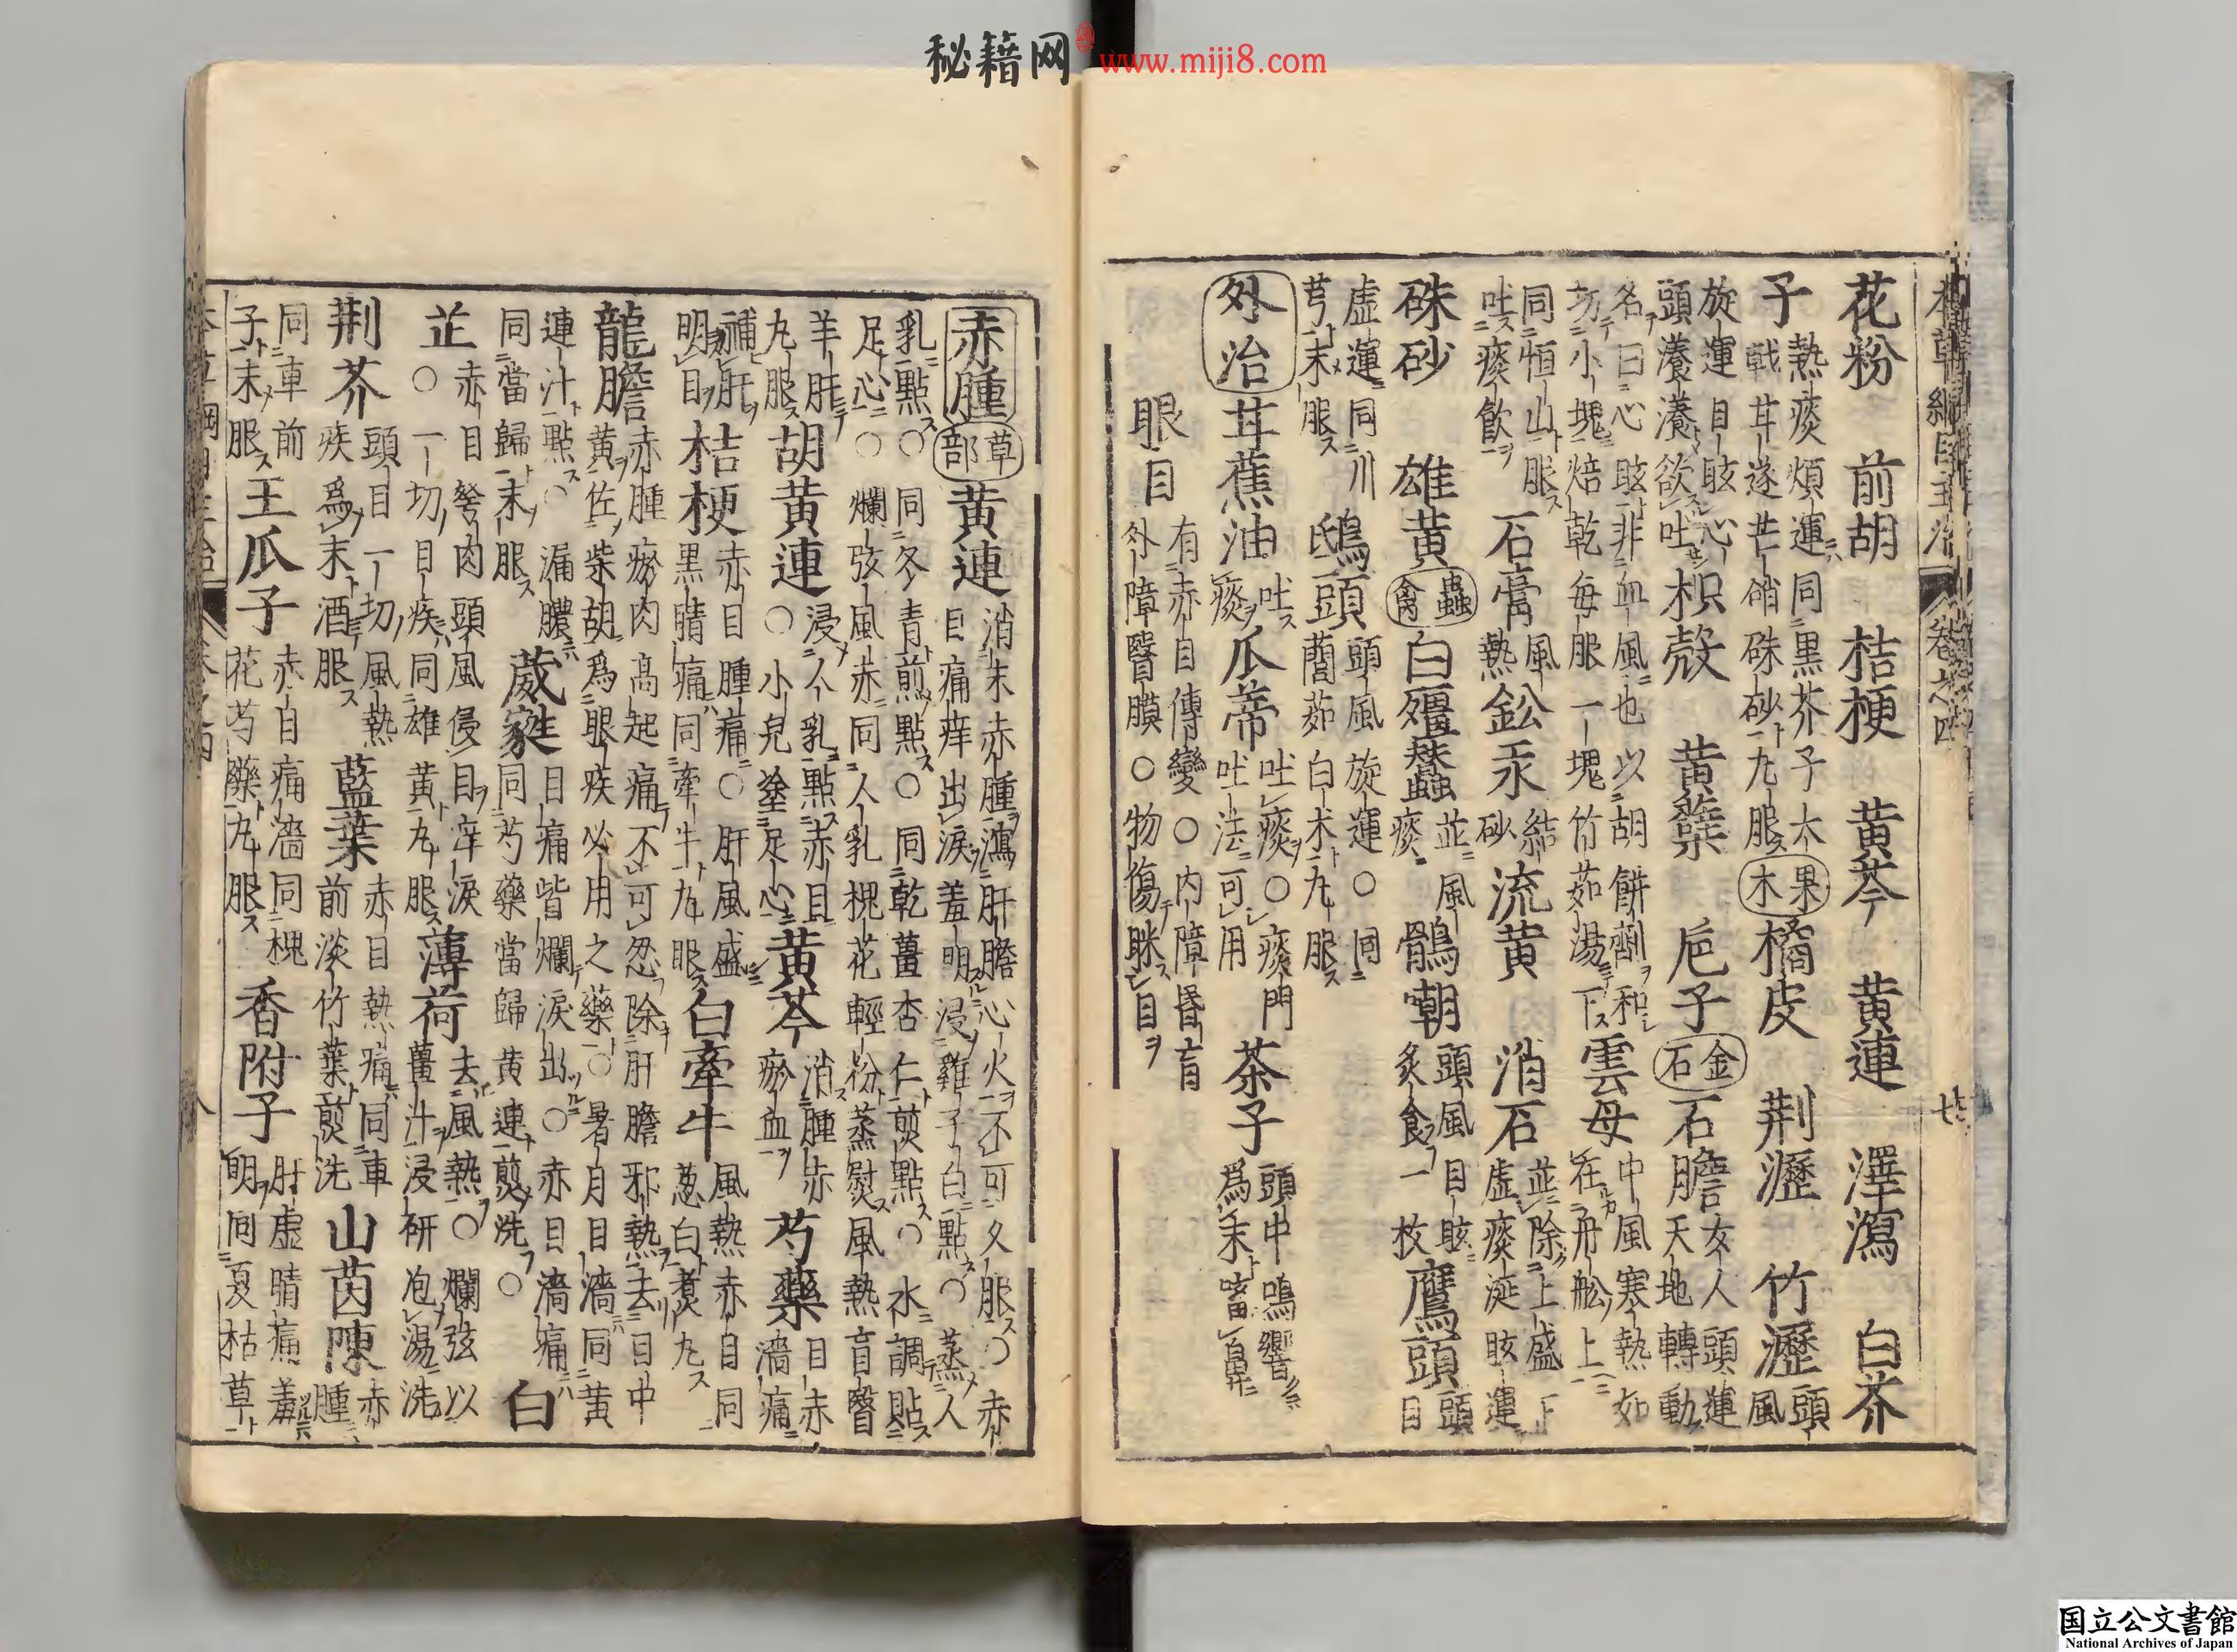 秘籍网 www.miji8.com
本草綱目主治 卷之四
花粉 前胡 桔梗 黄芩 黄連 澤瀉 白芥
子 熱痰煩運同黒芥子大戟甘遂芒硝硃砂丸服 果木 橘皮 荆瀝 竹瀝 頭風
旋運目眩心頭瀁瀁欲吐 枳殻 黄蘗 巵子 金石 石膽 女人頭運天地轉動
名曰心眩非血風也以胡餅劑和切小塊焙乾毎服一塊竹茹湯下 雲母 中風寒熱如在舟舩上
同恒山服吐痰飲 石膏 風熱 鈆汞 結砂 流黄 消石 並除上盛下虚痰涎眩運
硃砂 雄黄 蟲禽 白殭蠶 並風痰 鶻嘲 頭風目眩炙食一枚 鷹頭 頭目
虚運同川芎末服 鴟頭 頭風旋運○同䕡茹白朮丸服
外治 甘蕉油 吐痰 瓜蔕 吐痰○痰門吐法可用 茶子 頭中鳴響爲末㗜鼻
眼目 有赤目傳變○内障昏盲外障瞖膜○物傷眯目
赤腫 草部 黄連 消末赤腫瀉肝膽心火不可久服○赤目痛痒出淚羞明浸雞子白點○蒸人
乳點○同冬青煎點○同乾薑杏仁煎點○水調貼足心○爛弦風赤同人乳槐花輕粉蒸熨風熱盲瞖
羊肝丸服 胡黄連 浸人乳點赤目○小兒塗足心 黄芩 消腫赤瘀血 芍藥 目赤濇痛
補肝明目 桔梗 赤目腫痛○肝風盛黒睛痛同牽牛丸服 白牽牛 風熱赤目同葱白煑丸
龍膽 赤腫瘀肉高起痛不可忍除肝膽邪熱去目中黄佐柴胡爲眼疾必用之藥○暑月目濇同黄
連汁點○漏膿同當歸末服 葳蕤 目痛眥爛淚出○赤目濇痛同芍藥當歸黄連煎洗○ 白
芷 赤目努肉頭風侵目痒淚○一切目疾同雄黄丸服 薄荷 去風熱○爛弦以薑汁浸研泡湯洗
荆芥 頭目一切風熱疾爲末酒服 藍葉 赤目熱痛同車前淡竹葉煎洗 山茵蔯 赤腫
同車前子末服 王瓜子 赤目痛濇同槐花芍藥丸服 香附子 肝虚睛痛羞明同夏枯草
国立公文書館
National Archives of Japan